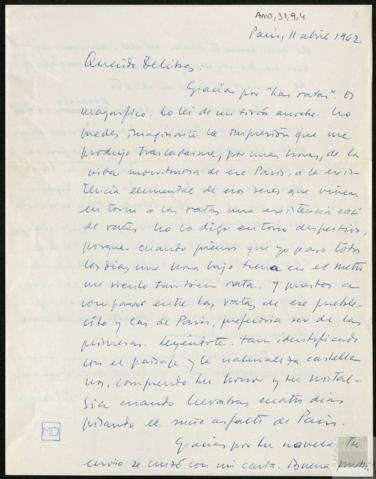 AMD, 31, 9, 4
París, 11 abril 1962
Querido Delibes:
Gracias por "Las ratas". Es
magnífico. Lo leí de un tirón anoche. No
puedes imaginarte la impresión que me
produjo trasladarme, por unas horas, de la
vida monstruosa de ese París, a la exis-
tencia elemental de esos seres que viven
en torno a las ratas una existencia casi
de ratas. No lo digo en tono despectivo,
porque cuando pienso que yo paso todos
los días una hora bajo tierra en el metro
me siento también rata. Y puestos a
comparar entre las ratas de ese pueble-
cito y las de París, preferiría ser de las
primeras. Leyéndote, tan identificado
con el paisaje y la naturaleza castella
nos, comprendo tu horror y tu nostal-
gia cuando llevabas cuatro días
pisando el sucio asfalto de París.
Gracias por tu novela. Tu
envío se cruzó con mi carta. Buena
MD